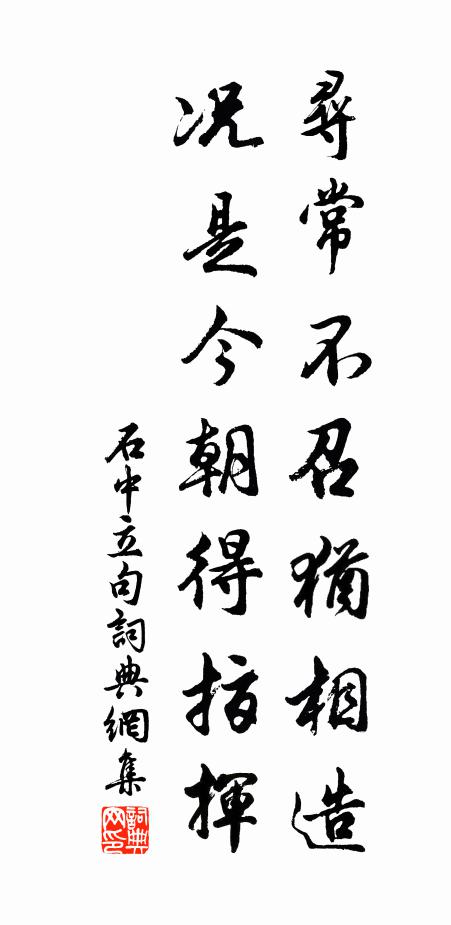 尋常不召猶相造
况是今朝得指揮
石中立句詞典網集
詞典網印